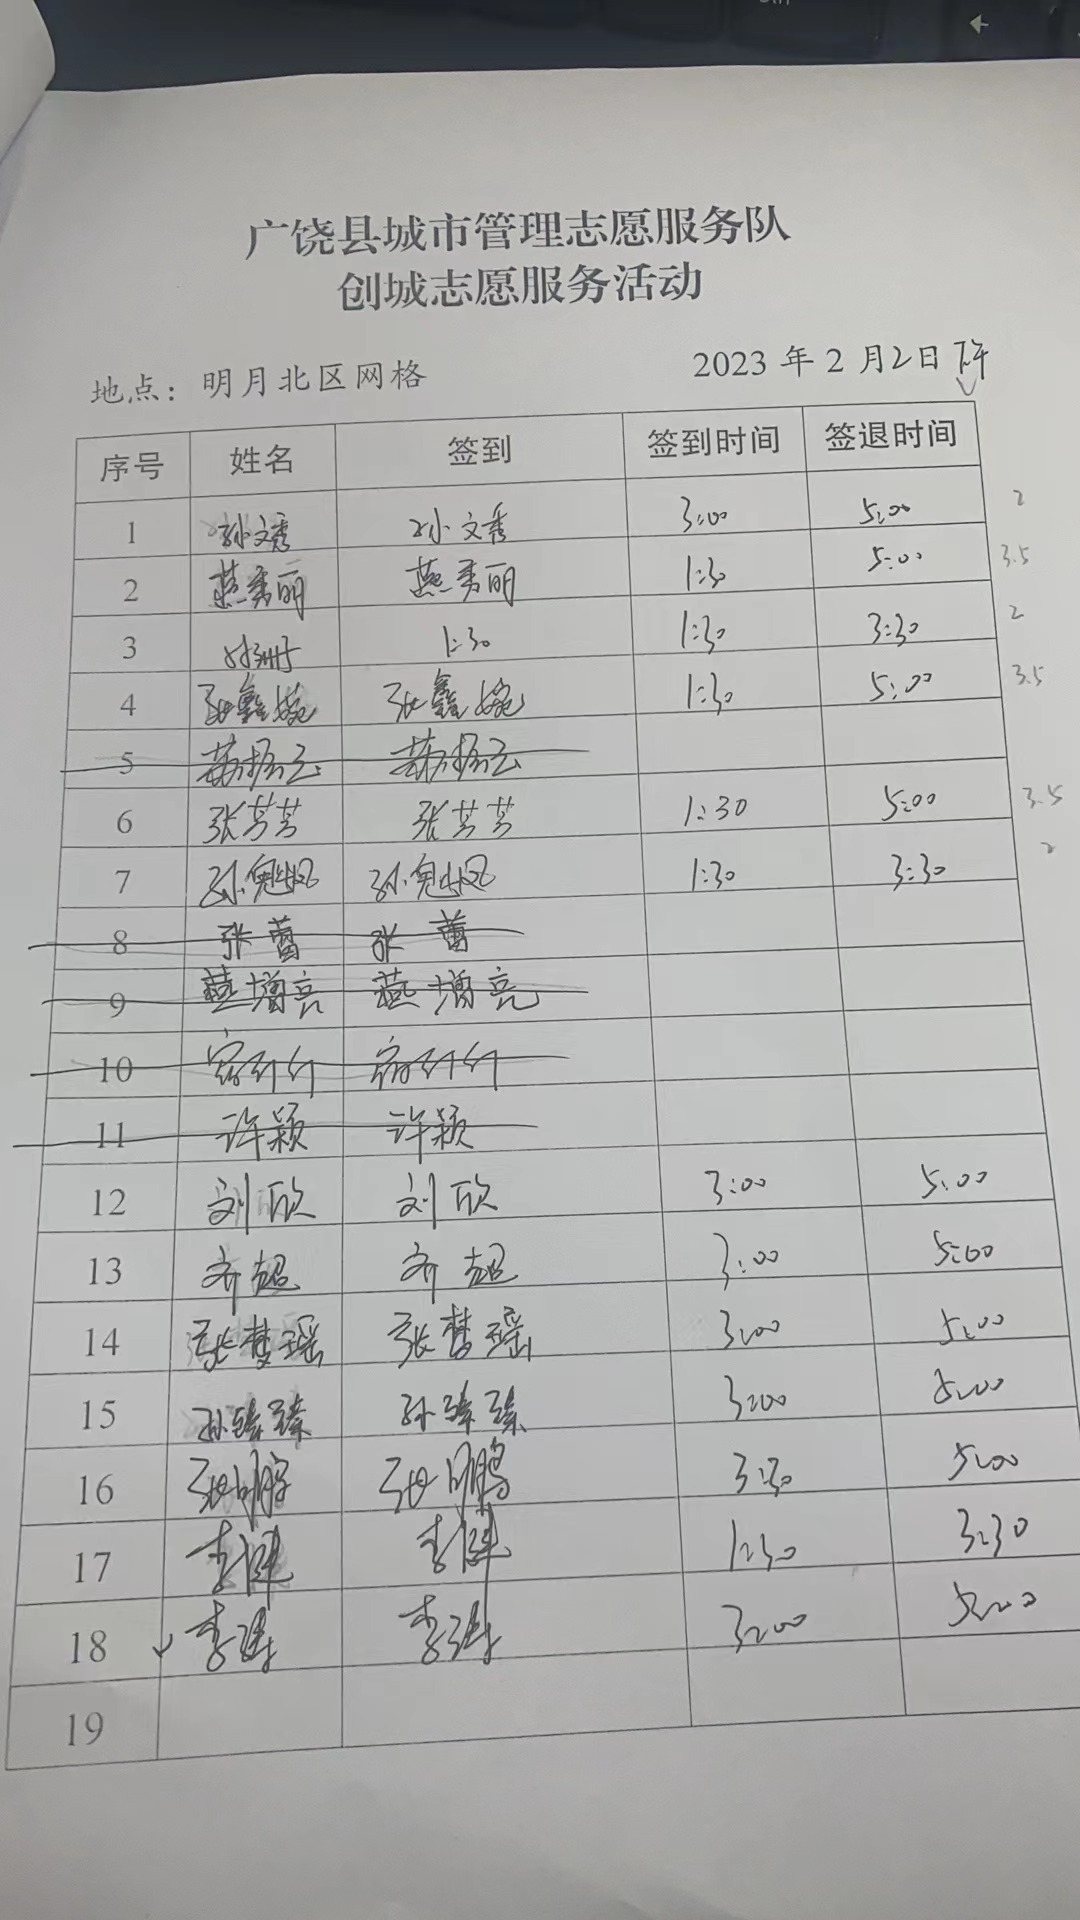 广饶县城市管理志愿服务队
创城志愿服务活动
地点：明月北区网格 2023年2月2日 下午
序号 姓名 签到 签到时间 签退时间
1 孙文秀 孙文秀 3:00 5:00 2
2 燕秀丽 燕秀丽 1:30 5:00 3.5
3 1:30 1:30 3:30 2
4 张鑫婉 张鑫婉 1:30 5:00 3.5
5
6 张芳芳 张芳芳 1:30 5:00 3.5
7 孙魁凤 孙魁凤 1:30 3:30 2
8 张蕾 张蕾
9 燕增亮 燕增亮
10
11 许颖 许颖
12 刘欣 刘欣 3:00 5:00
13 齐超 齐超 3:00 5:00
14 张梦瑶 张梦瑶 3:00 5:00
15 孙臻臻 孙臻臻 3:00 5:00
16 张明鹏 张明鹏 3:30 5:00
17 李 李 1:30 3:30
18 李涛 李涛 3:00 5:00
19